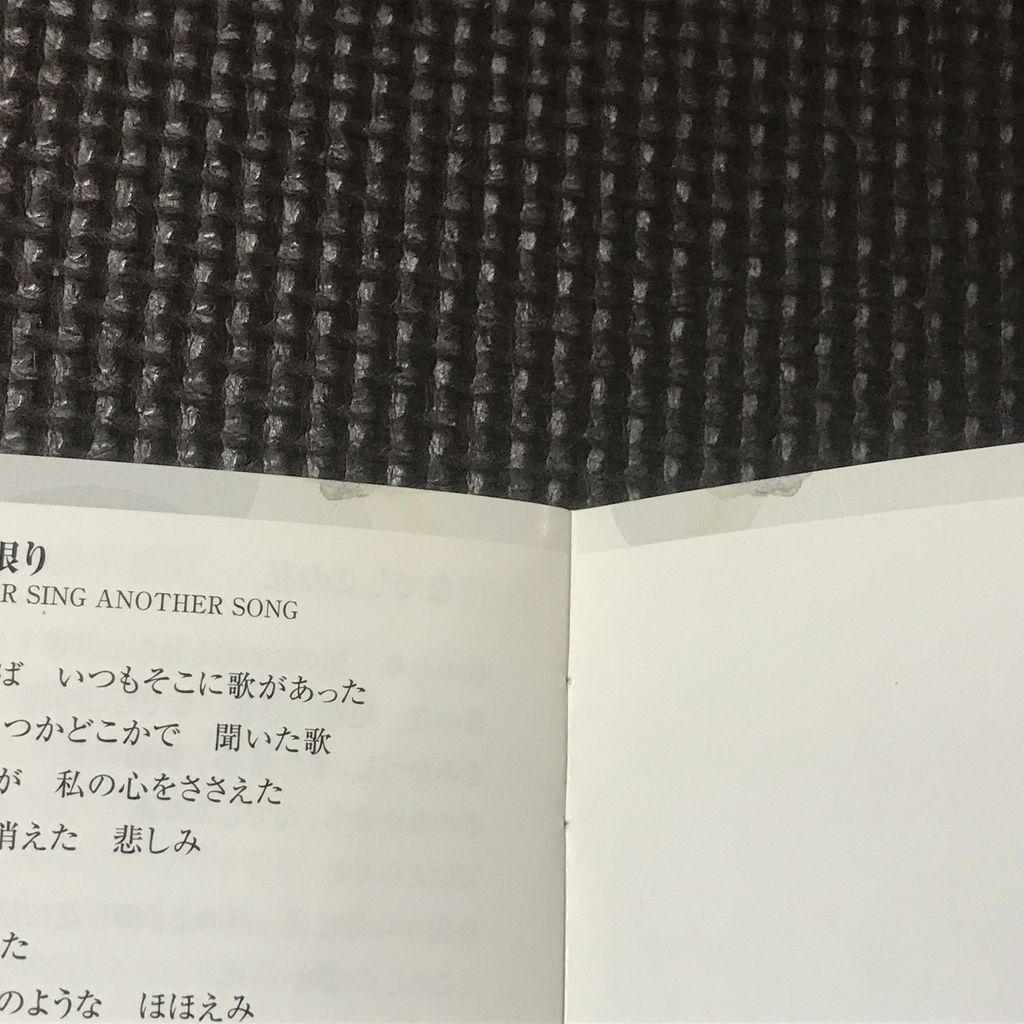 限り
R SING ANOTHER SONG
ば いつもそこに歌があった
つかどこかで 聞いた歌
が 私の心をささえた
消えた 悲しみ
た
のような ほほえみ